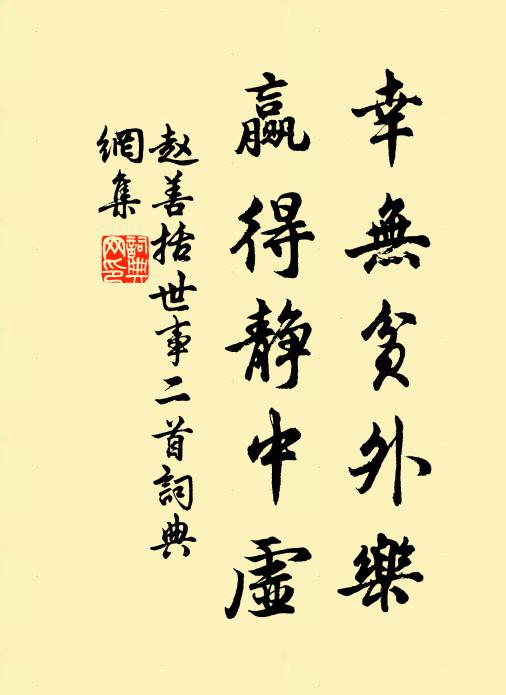 幸無貧外樂
贏得靜中虛
趙善括世事二首詞典
網集
詞典
网印